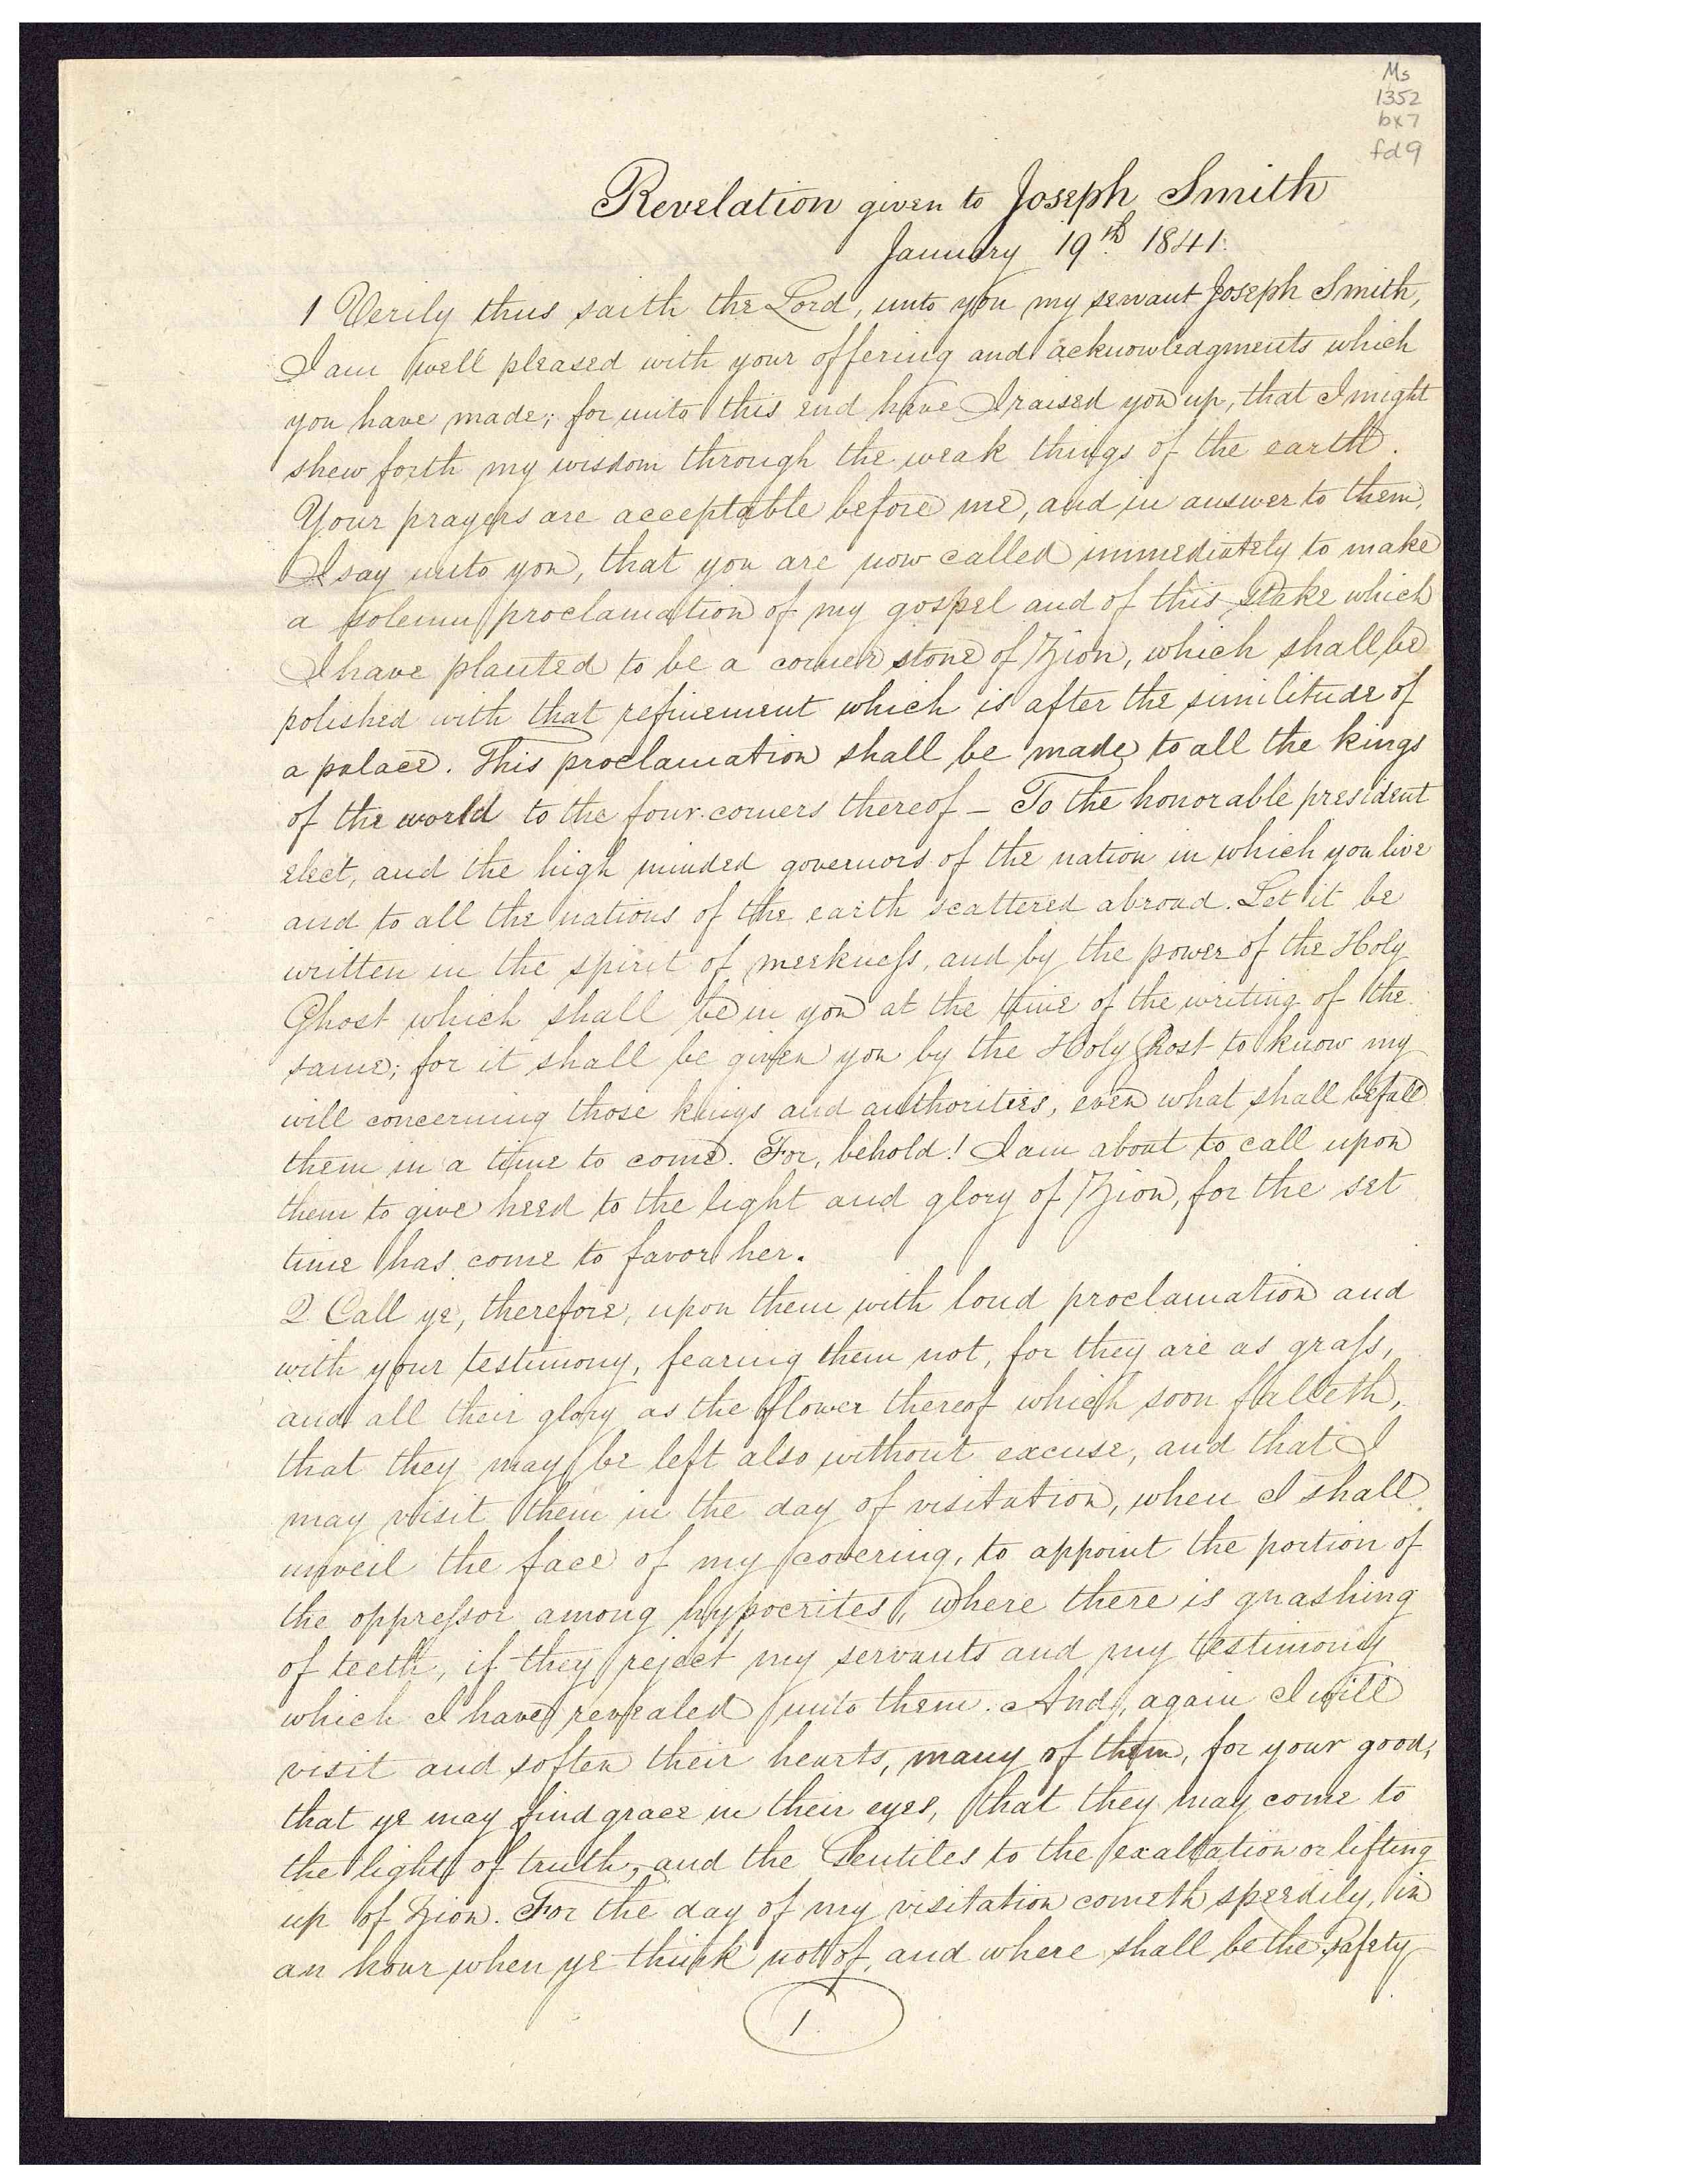 Ms
1352
bx7
fd9
Revelation given to Joseph Smith
January 19th 1841.
1 Verily thus saith the Lord, unto you my servant Joseph Smith,
I am well pleased with your offering and acknowledgments which
you have made; for unto this end have I raised you up, that I might
shew forth my wisdom through the weak things of the earth.
Your prayers are acceptable before me, and in answer to them,
I say unto you, that you are now called immediately to make
a solemn proclamation of my gospel and of this stake which
I have planted to be a corner stone of Zion, which shall be
polished with that refinement which is after the similitude of
a palace. This proclamation shall be made to all the kings
of the world to the four corners thereof – To the honorable president
elect, and the high minded governors of the nation in which you live
and to all the nations of the earth scattered abroad. Let it be
written in the spirit of meekneſs, and by the power of the Holy
Ghost which shall be in you at the time of the writing of the
same; for it shall be given you by the Holy Ghost to know my
will concerning those kings and authorities, even what shall befall
them in a time to come. For, behold! I am about to call upon
them to give heed to the light and glory of Zion, for the set
time has come to favor her.
2 Call ye, therefore, upon them with loud proclamation and
with your testimony, fearing them not, for they are as graſs,
and all their glory as the flower thereof which soon falleth,
that they may be left also without excuse, and that I
may visit them in the day of visitation, when I shall
unveil the face of my covering, to appoint the portion of
the oppreſsor among hypocrites, where there is gnashing
of teeth, if they reject my servants and my testimony
which I have revealed unto them. And, again I will
visit and soften their hearts, many of them, for your good,
that ye may find grace in their eyes, that they may come to
the light of truth, and the Gentiles to the exaltation or lifting
up of Zion. For the day of my visitation cometh speedily, in
an hour when ye think not of, and where shall be the safety
1.